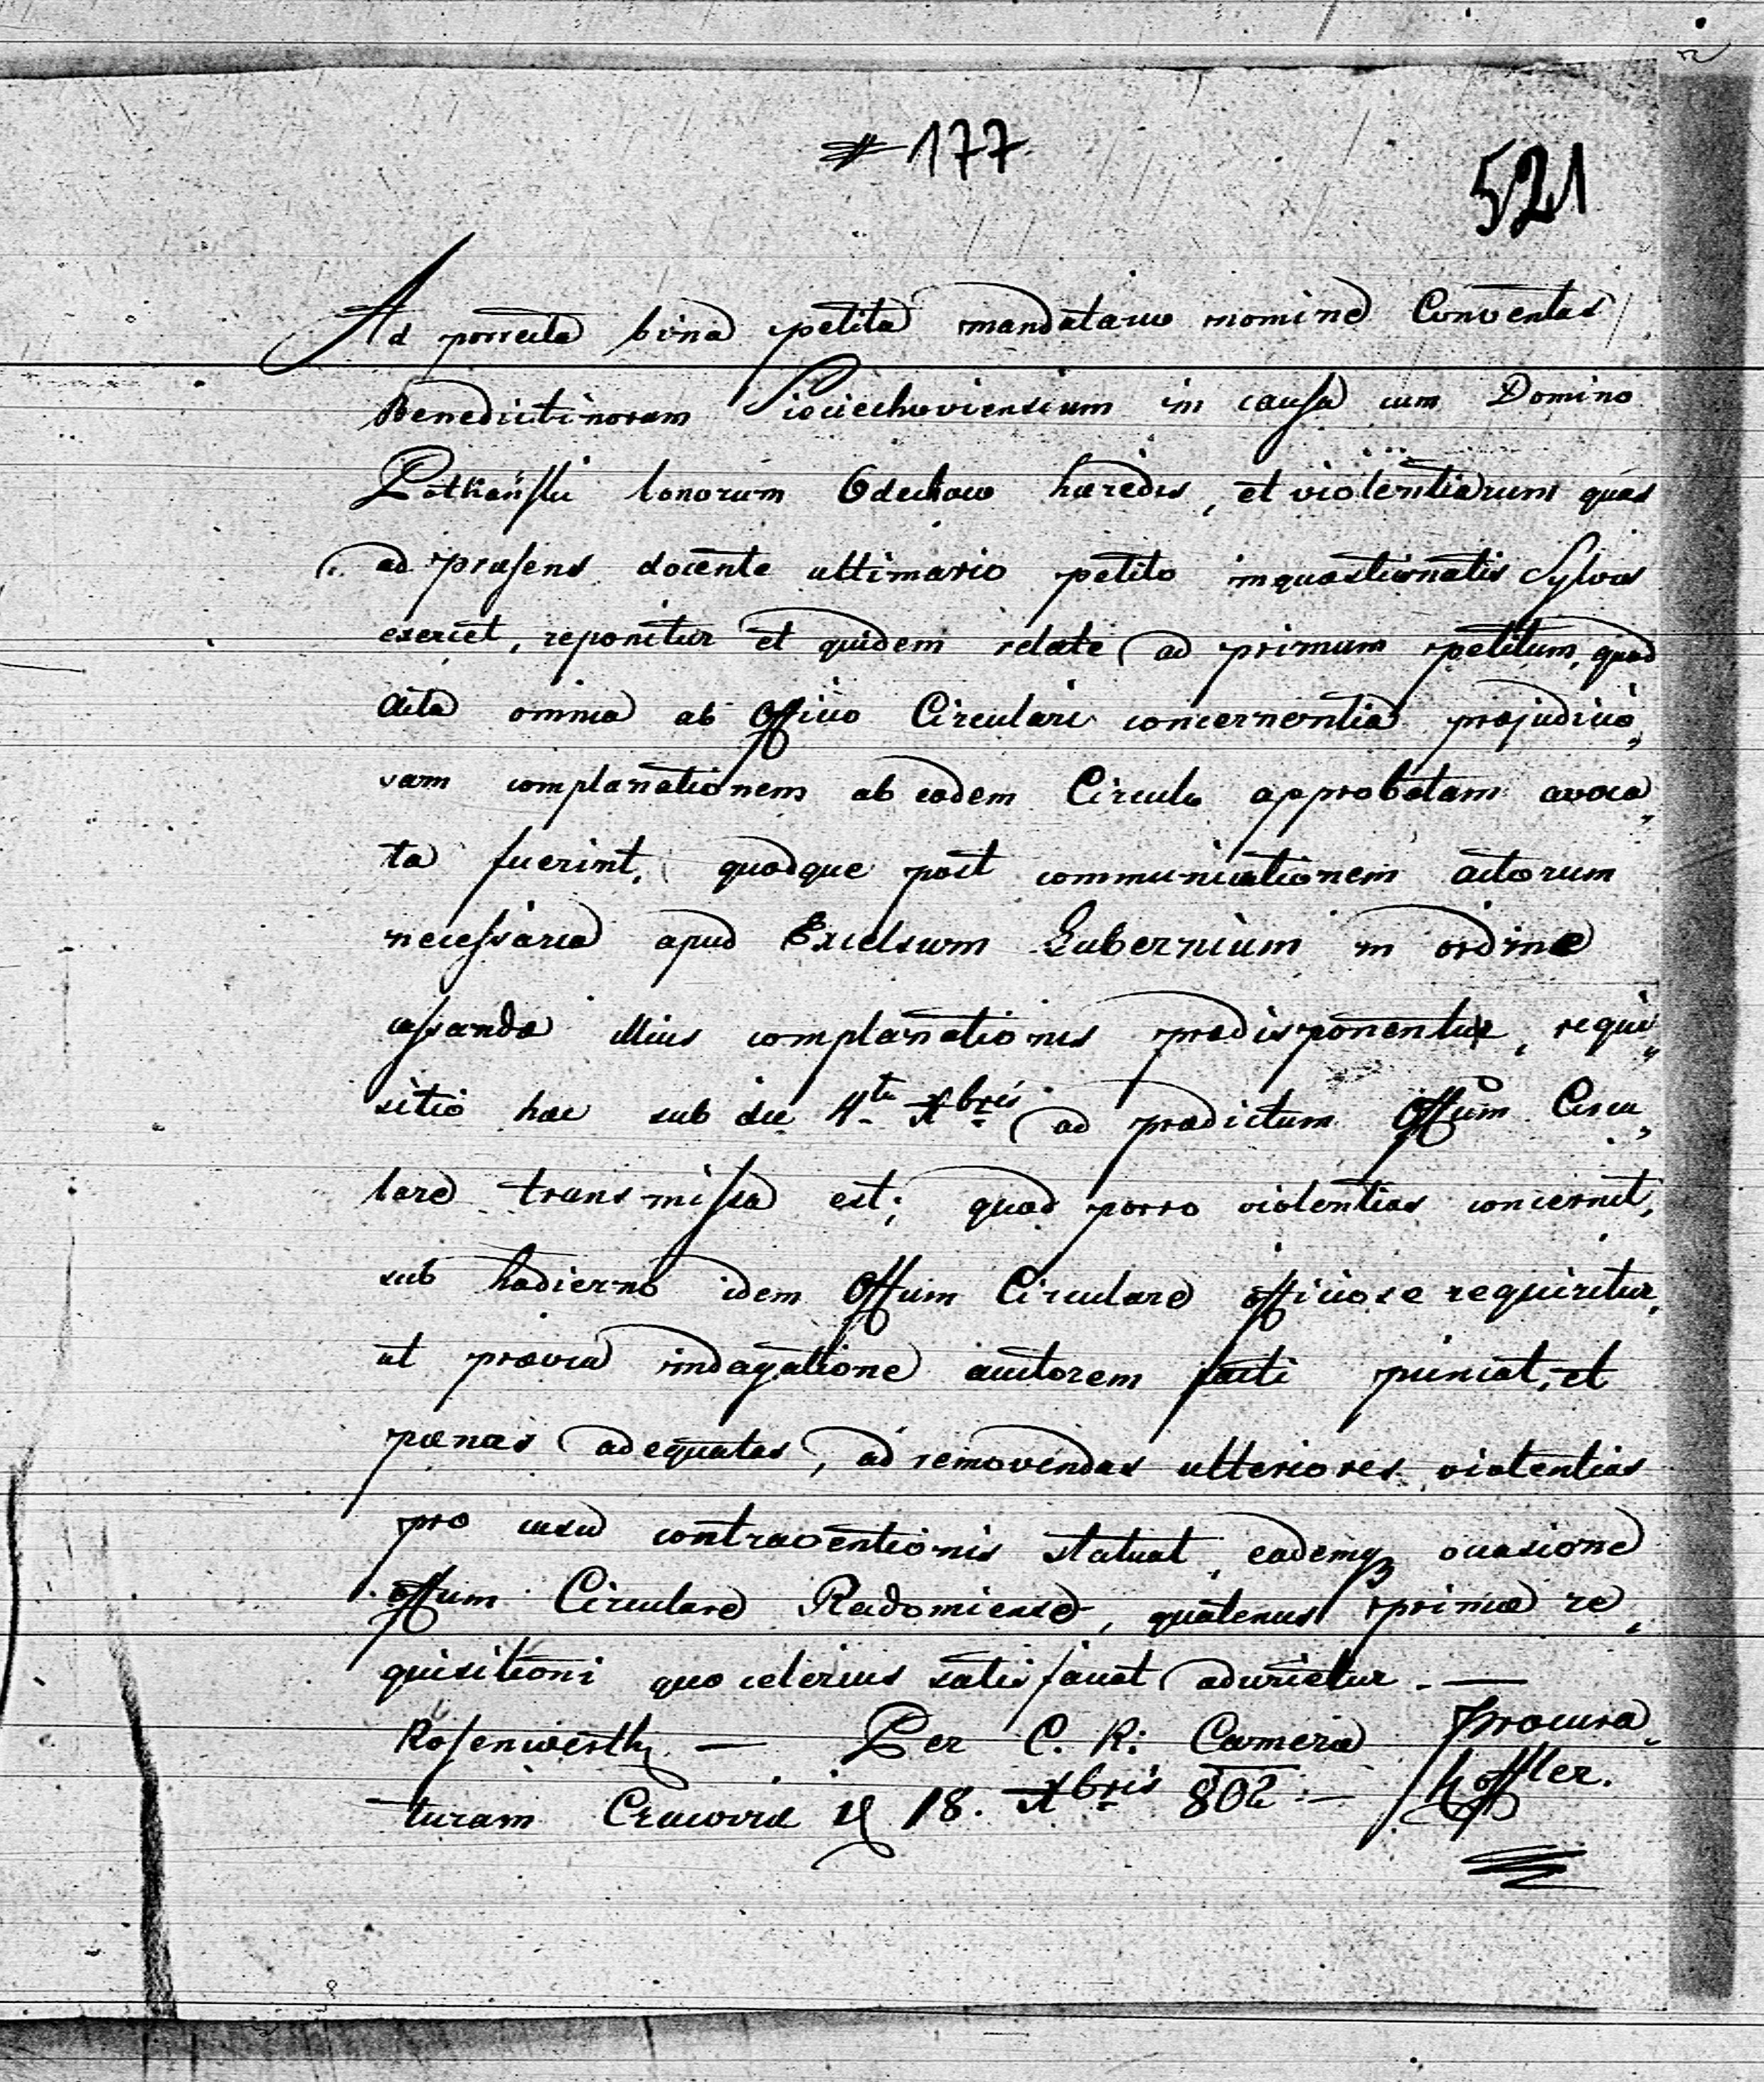 # 177
521
Ad porrecta bina petita mandatario nomine Conventus
Benedictinorum Sieciechoviensium in causa cum Domino
Potkański bonorum Odechow hæredis, et violentiarum quas
ad præsens docente ultimario petito inquæstionatis Sylvis
exercet, reponitur et quidem relate ad primum petitum, quod
acta omnia ab Officio Circulari concernentia præjudicio,
sam complanationem ab eodem Circulo approbatam avoca,
ta fuerint, quodque post communicationem actorum
necessaria apud Excelsum Gubernium in ordine
cassandæ illius complanationis prædisponentur, requi,,
sitio hæc sub die 4ta Xbris ad prædictum Offum Circu,
lare transmissa est; quod porro violentias concernit,
sub hodierno idem Offum Circulare officiose requiritur,
ut prævia indagatione auctorem facti puniat, et
pænas adequatas, ad removendas ulteriores violentias
pro casu contraventionis statuat, eademq occasione
offum Circulare Radomiense, quatenus primæ re,
quisitioni quo celerius satisfaciat adurietur. —
Rosenwerth — Per C. R. Cameræ Procura,
turam Cracoviæ 18. Xbris 802 — Höffler.